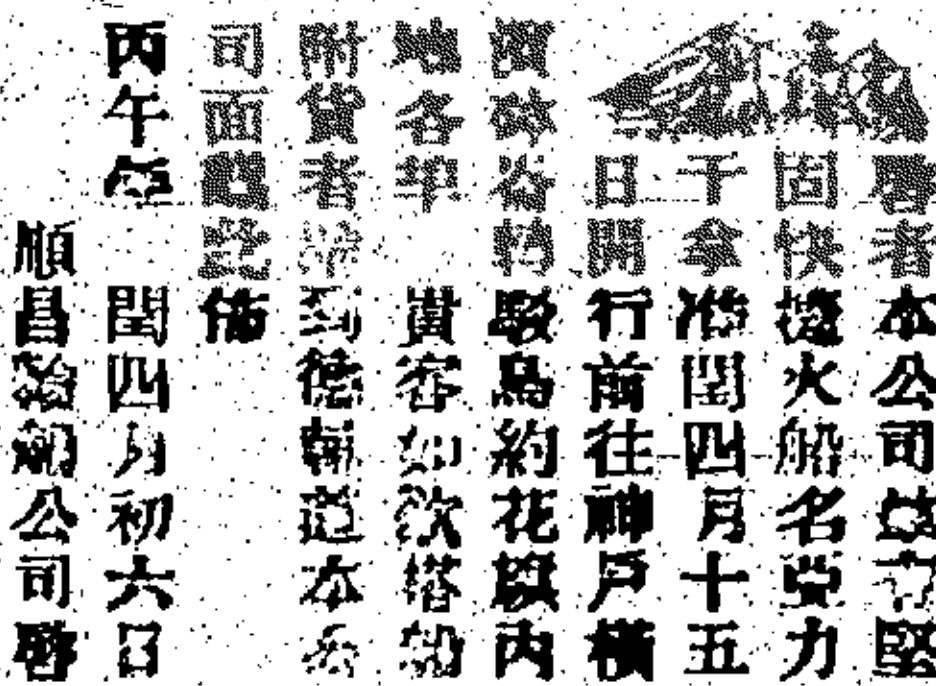 啓者本公司立堅
固快捷火船名亞力
于拿准閏四月十五
日開行前往神戶橫
濱砵崙轉駁鳥約花旗內
地各埠 貴客如欲搭船
附貨者祈到德輔道本公
司面議此佈
丙午年 閏四月初六日
順昌輪船公司啓